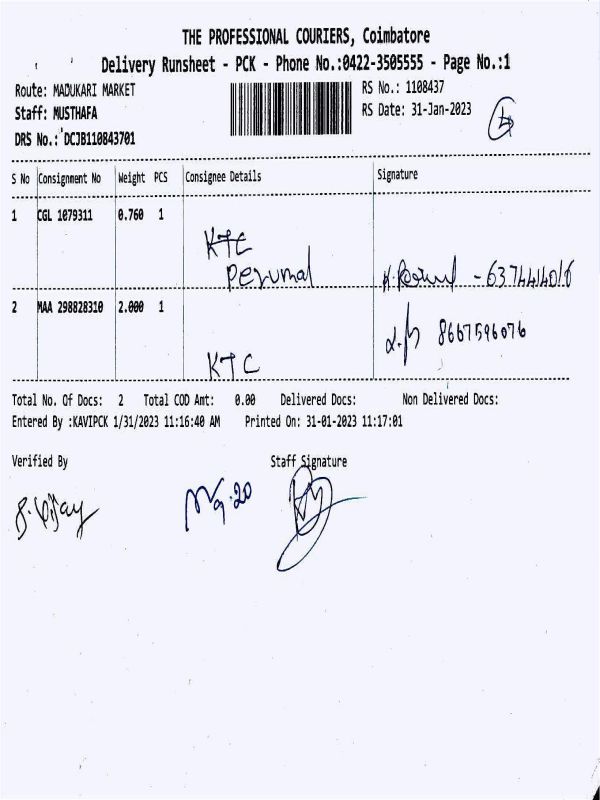 THE PROFESSIONAL COURIERS, Coimbatore
Delivery Runsheet - PCK - Phone No.:0422-3505555 - Page No.:1
Route: MADUKARI MARKET
RS No.: 1108437
Staff: MUSTHAFA
RS Date: 31-Jan-2023
DRS No.: DCJB110843701
S No Consignment No Weight PCS Consignee Details Signature
1 CGL 1079311 0.760 1
KTC
Perumal
2 MAA 298828310 2.000 1
8667596076
KTC
Total No. Of Docs: 2 Total COD Amt: 0.00 Delivered Docs: Non Delivered Docs:
Entered By :KAVIPCK 1/31/2023 11:16:40 AM Printed On: 31-01-2023 11:17:01
Verified By Staff Signature